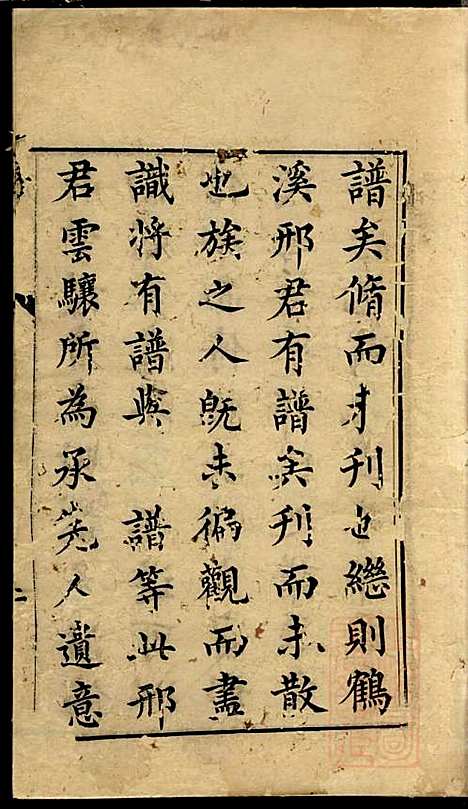 譜矣脩而未刊也繼則鶴
溪邢君有譜矣刊而未散
也族之人旣未徧觀而盡
識將有譜與　譜等此邢
君雲驤所為承先人遺意
二